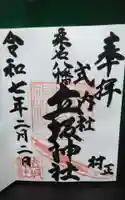 奉拝
式内社
村正
桑名八幡
立坂神社
令和七年二月二日